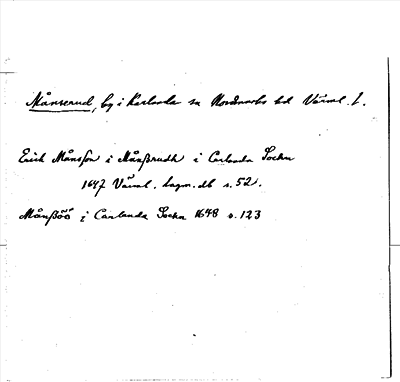 Månserud, by i Karlanda sn Nordmarks hd Värml. l.
Erich Månsson i Månßrudh i Carlanda Sockn
1647 Värml. lagm. db s. 52.
Månßöö i Carlanda Sockn 1648 s. 123